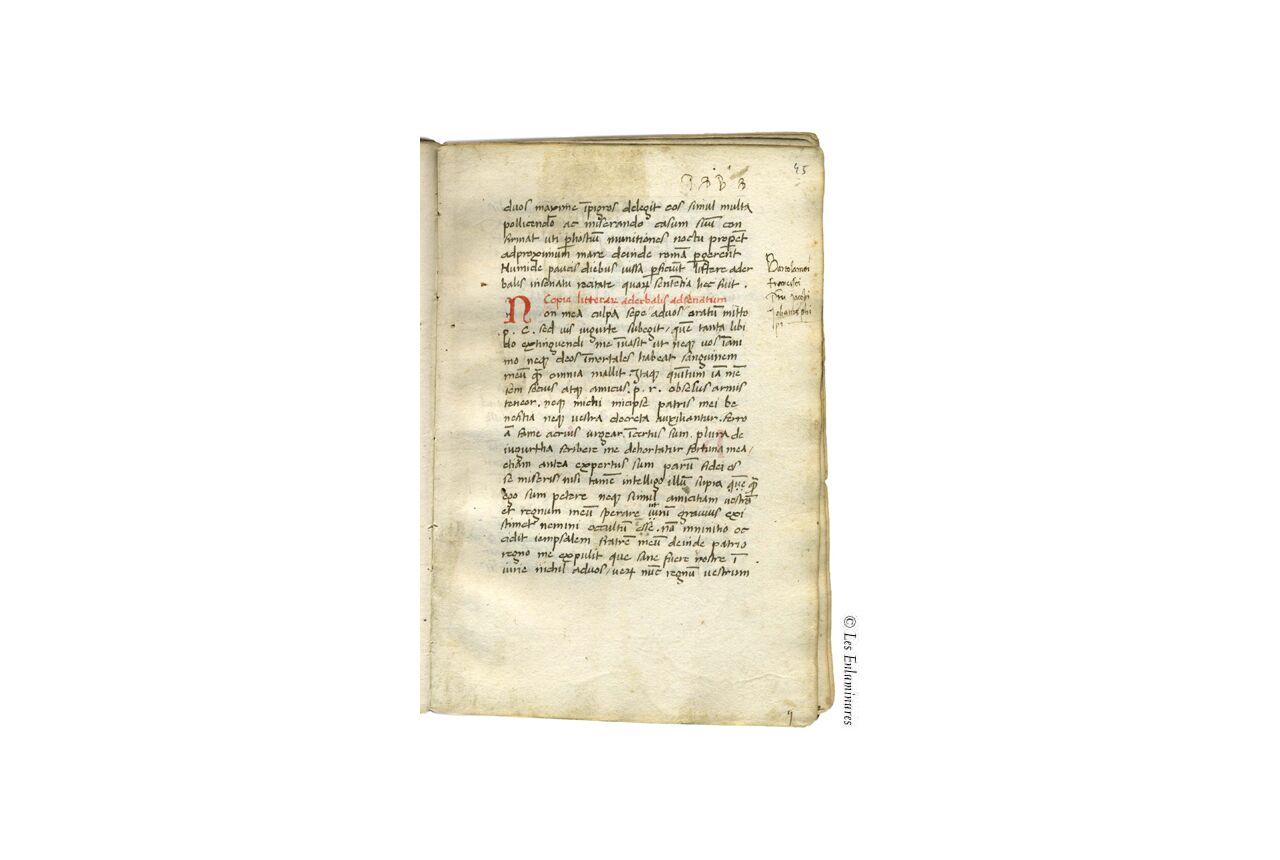 45
B B B B
duos maxime īpigros delegit eos simul multa
pollicendo ac miserando casum suū con
firmat uti p hostiū munitiones noctu propēt
ad proximum mare deinde romā pgerēt
Numide paucis diebus iussa pficiūt littere ader
balis insenatu recitate quarꝝ sentētia hec fuit .
Copia litterarꝝ aderbalis ad senatum
Non mea culpa sepe ad uos oratum mitto
p. C. sed uis iugurte subegit, quē tanta libi
do extinguendi me īuasit ut neqꝫ uos īani
mo neqꝫ deos īmortales habeat sanguinem
meū q̄ omnia mallit Itaqꝫ quītum iā mē
sem socius atqꝫ amicus . p . r . obsesus armis
teneor . neqꝫ michi micipse patris mei be
nefitia neqꝫ uestra decreta auxiliantur . ferro
ā fame acrius urgear īcertus sum . plura de
iugurtha scribere me dehortatur fortuna mea /
etiam antea expertus sum parū fidei es
se miseris nisi tamē intelligo illū supra quē q̄
ego sum petere neqꝫ simul amicitiam uestrā
et regnum meū sperare utrū grauius exi
stimet nemini occultū esse . nā in initio oc
cidit iempsalem fratrē meū deinde patrio
regno me expulit que sane fuere nostre ī
iurie nichil ad uos / uerꝝ nūc regnū uestrum
Bartolamei
francisci
Johannis phi
lpi
© Les Enluminures